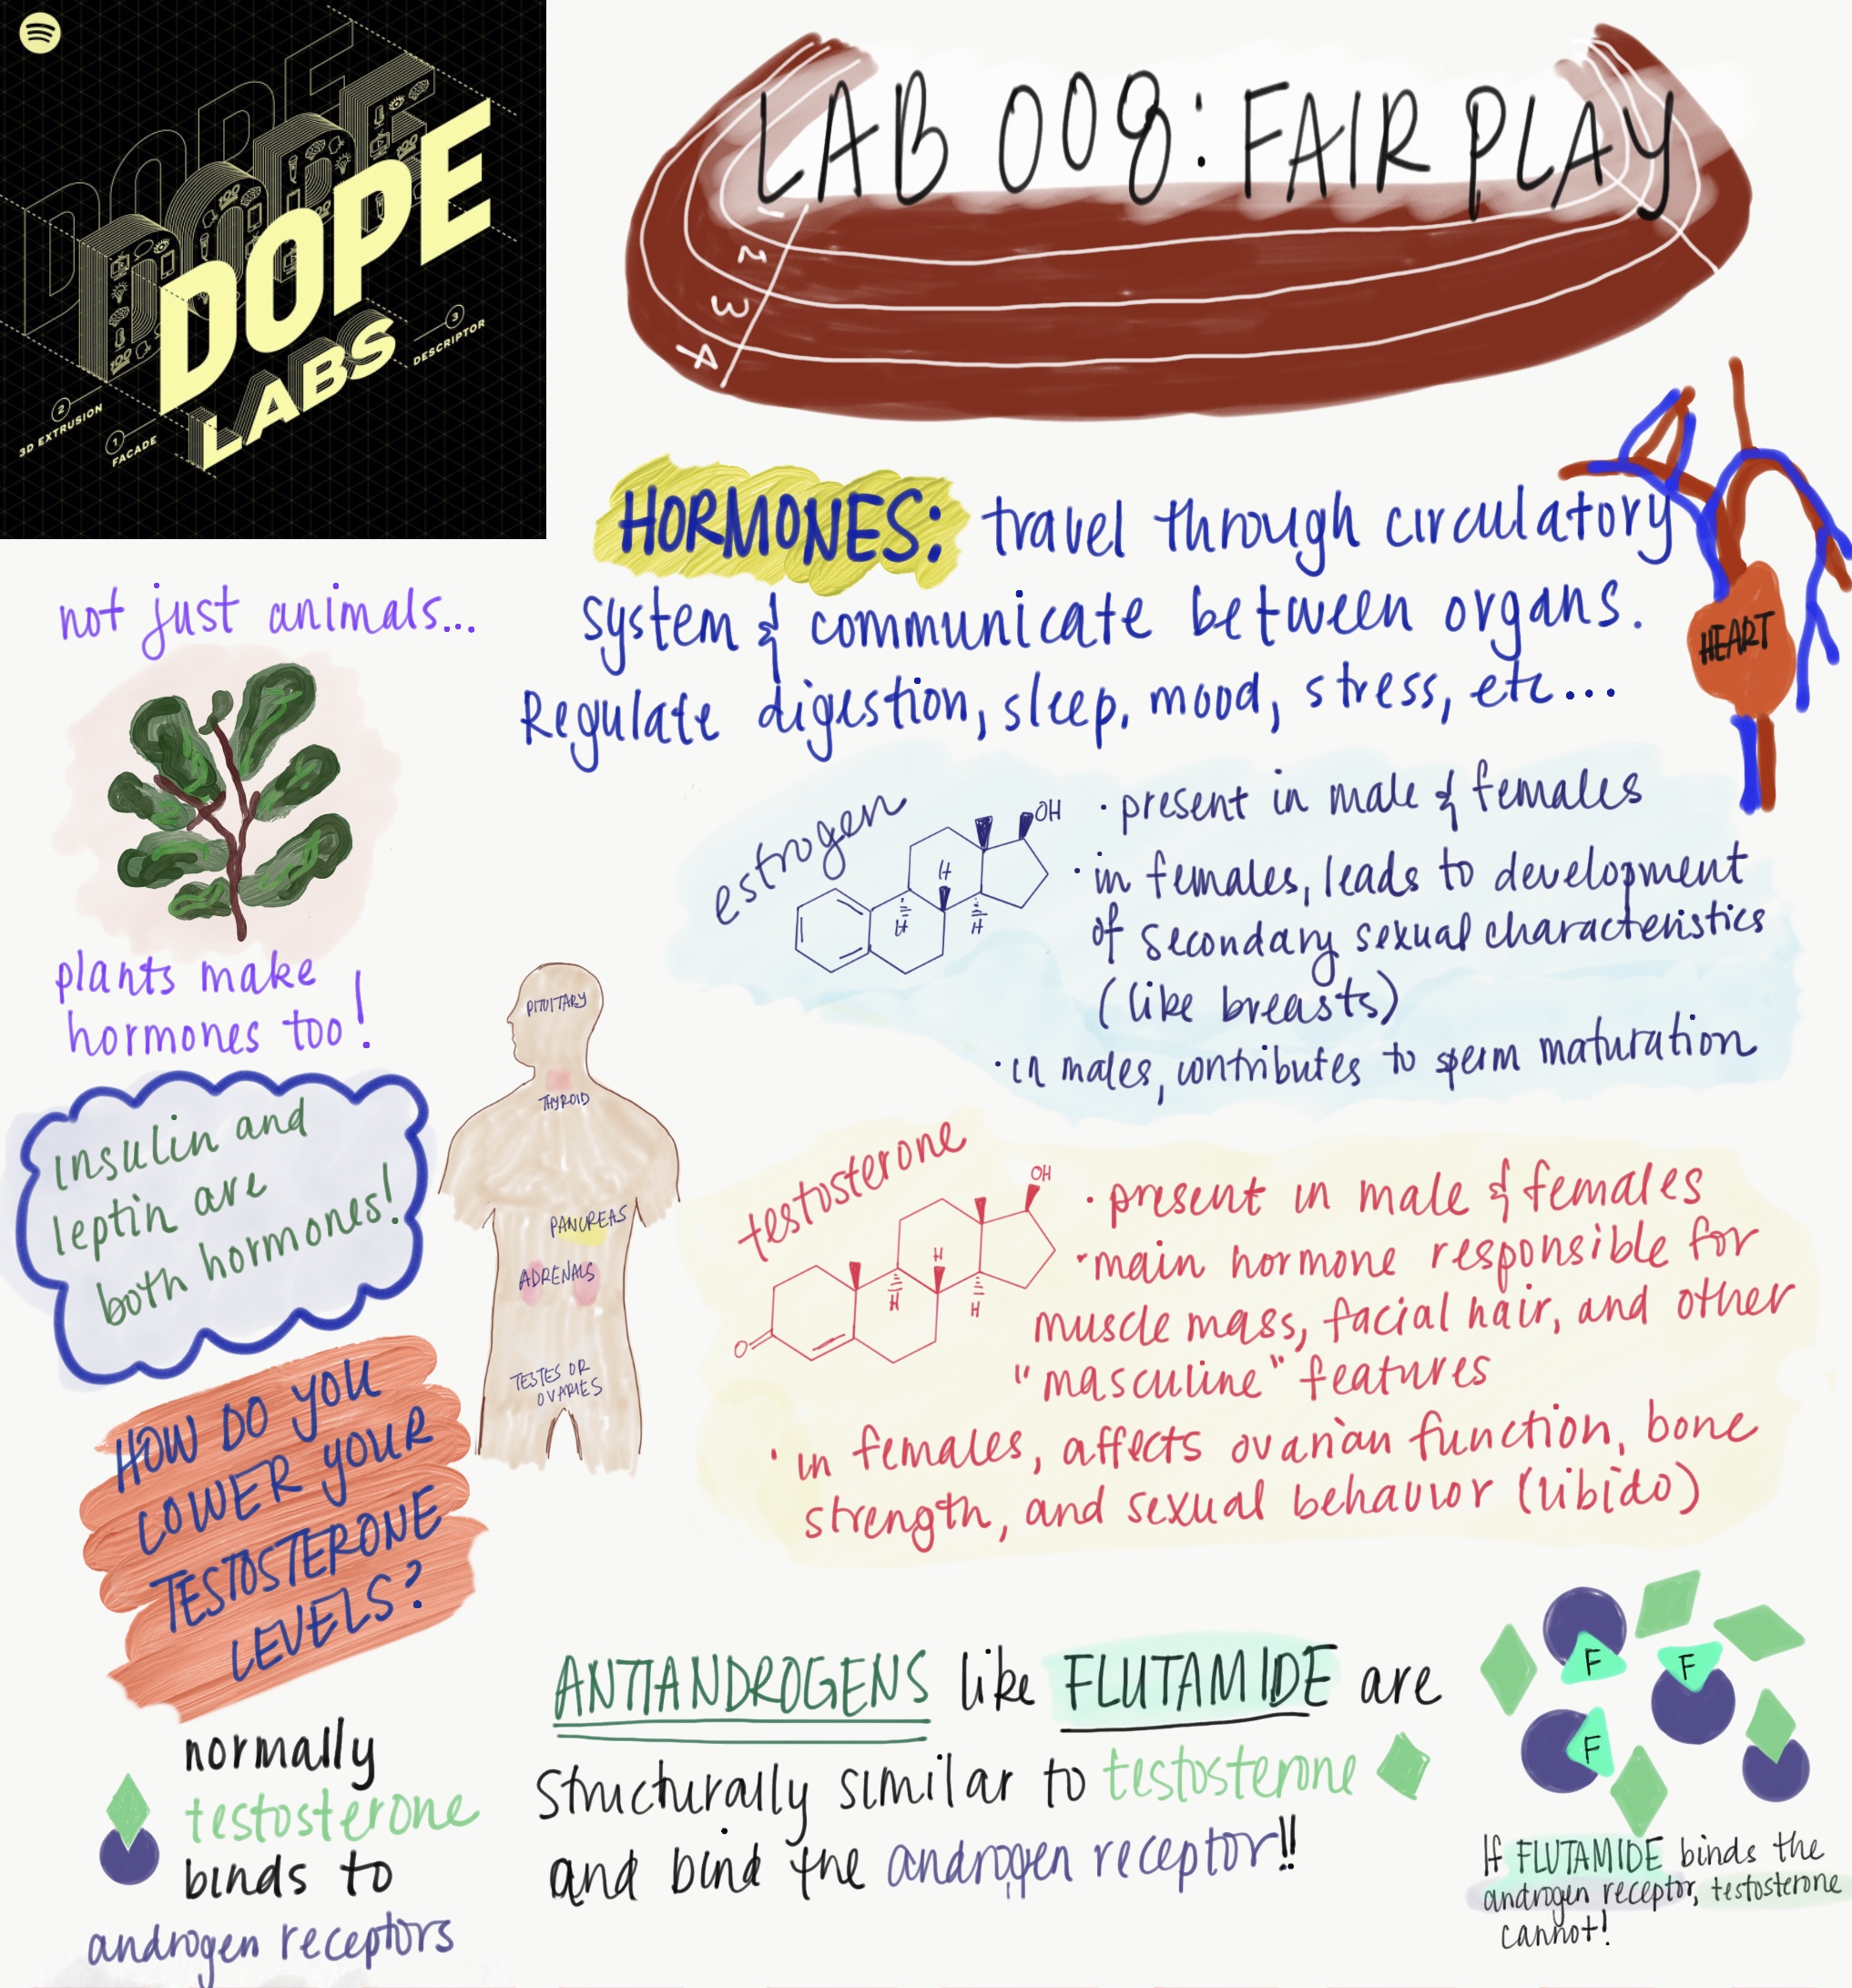 DOPE
LABS
3D EXTRUSION
2
1
FACADE
3
DESCRIPTOR
LAB 008: FAIR PLAY
1
2
3
4
HORMONES: travel through circulatory
system & communicate between organs.
Regulate digestion, sleep, mood, stress, etc...
HEART
not just animals...
plants make
hormones too!
Insulin and
leptin are
both hormones!
PITUITARY
THYROID
PANCREAS
ADRENALS
TESTES OR
OVARIES
estrogen
OH
H
H
H
· present in male & females
· in females, leads to development
of secondary sexual characteristics
(like breasts)
· in males, contributes to sperm maturation
testosterone
OH
H
H
H
O
· present in male & females
· main hormone responsible for
muscle mass, facial hair, and other
"masculine" features
· in females, affects ovarian function, bone
strength, and sexual behavior (libido)
HOW DO YOU
LOWER YOUR
TESTOSTERONE
LEVELS?
normally
testosterone
binds to
androgen receptors
ANTIANDROGENS like FLUTAMIDE are
structurally similar to testosterone
and bind the androgen receptor!!
F
F
F
If FLUTAMIDE binds the
androgen receptor, testosterone
cannot!